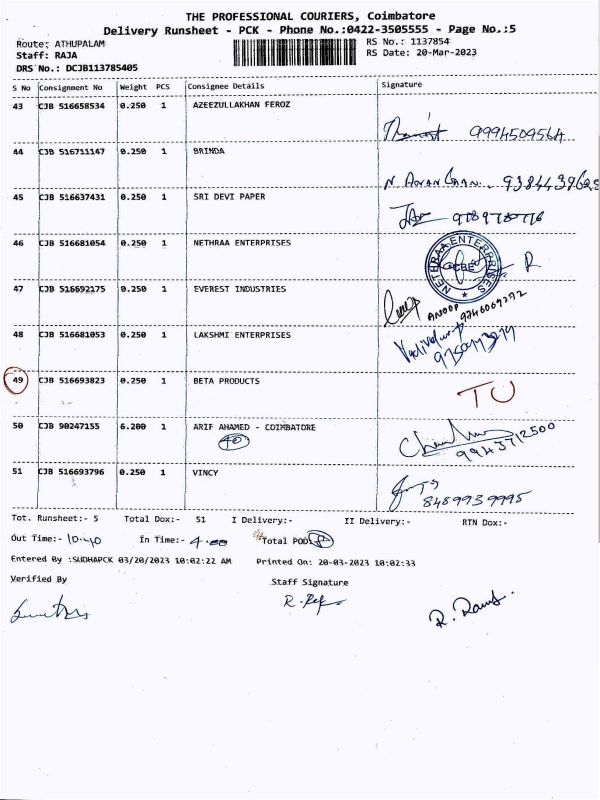 THE PROFESSIONAL COURIERS, Coimbatore
Delivery Runsheet - PCK - Phone No.:0422-3505555 - Page No.:5
Route: ATHUPALAM RS No.: 1137854
Staff: RAJA RS Date: 20-Mar-2023
DRS No.: DCJB113785405
S No Consignment No Weight PCS Consignee Details Signature
43 CJB 516658534 0.250 1 AZEEZULLAKHAN FEROZ
9994509564
44 CJB 516711147 0.250 1 BRINDA
45 CJB 516637431 0.250 1 SRI DEVI PAPER
46 CJB 516681054 0.250 1 NETHRAA ENTERPRISES
NETHRAA ENTERPRISES CBE
47 CJB 516692175 0.250 1 EVEREST INDUSTRIES
ANOOP
48 CJB 516681053 0.250 1 LAKSHMI ENTERPRISES
49 CJB 516693823 0.250 1 BETA PRODUCTS
50 CJB 90247155 6.200 1 ARIF AHAMED - COIMBATORE
9943712500
51 CJB 516693796 0.250 1 VINCY
8489939995
Tot. Runsheet:- 5 Total Dox:- 51 I Delivery:- II Delivery:- RTN Dox:-
Out Time:- 10.40 In Time:- 4.00 Total POD:
Entered By :SUDHAPCK 03/20/2023 10:02:22 AM Printed On: 20-03-2023 10:02:33
Verified By Staff Signature